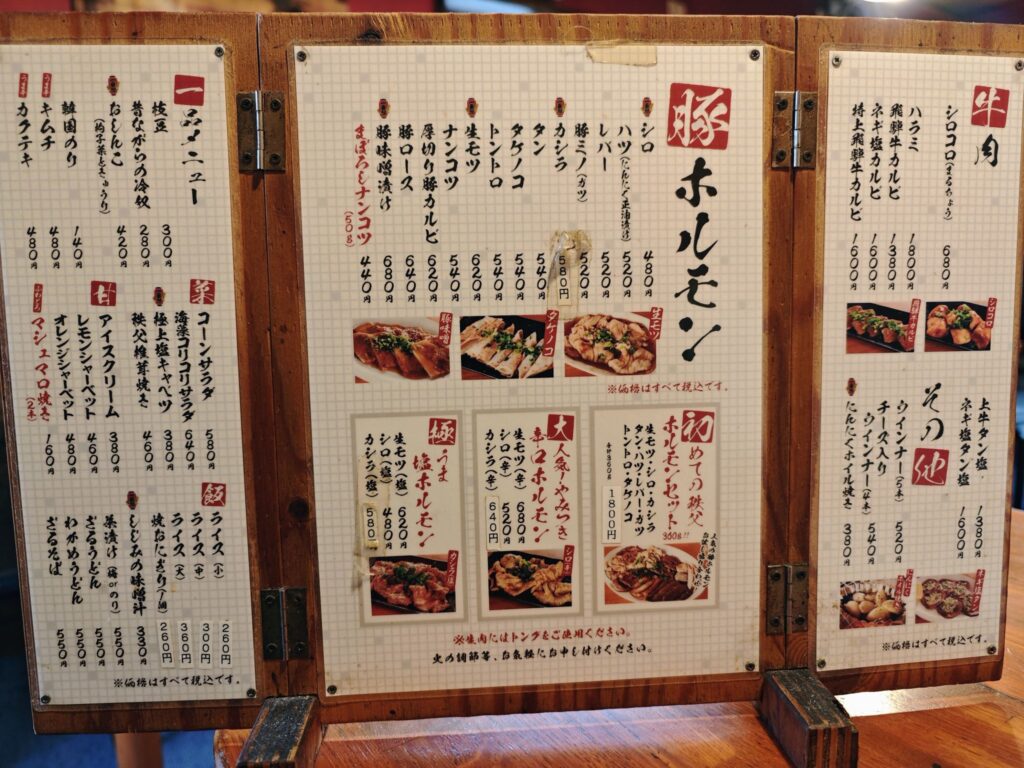 牛肉
シロコロ(まるちょう) 680円
ハラミ 1800円
飛騨牛カルビ 1380円
ネギ塩カルビ 1600円
特上飛騨牛カルビ 1600円
シロコロ
飛騨牛カルビ
その他
上牛タン塩 1380円
ネギ塩タン塩 1600円
ウインナー(5本) 520円
チーズ入り
ウインナー(4本) 540円
にんにくホイル焼き 380円
上牛タン塩
にんにくホイル焼き
※価格はすべて税込です。
豚ホルモン
シロ 480円
ハツ(にんにく正油漬け) 520円
レバー 520円
豚ミノ(ガツ) 520円
カシラ 580円
タン 540円
タケノコ 540円
トントロ 540円
生モツ 620円
ナンコツ 540円
厚切り豚カルビ 620円
豚ロース 640円
豚味噌漬け 680円
まぼろしナンコツ(50g) 440円
生モツ
タケノコ
豚味噌
※価格はすべて税込です。
初めての秩父
ホルモンセット 360g!!
生モツ・シロ・カシラ
タン・ハツ・レバー・カツ
トントロ・タケノコ
合計360g
1800円
人気の豚ホルモン
お試し盛り合わせ
大人気!やみつき
辛口ホルモン
生モツ(辛) 680円
シロ(辛) 520円
カシラ(辛) 640円
シロ辛
極うま
塩ホルモン
生モツ(塩) 620円
シロ(塩) 480円
カシラ(塩) 580
カシラ塩
※生肉にはトングをご使用ください。
火の調節等、お気軽にお申し付けください。
一品メニュー
枝豆 300円
昔ながらの冷奴 280円
おしんこ 420円
韓国のり 140円
うま辛
キムチ 480円
うま辛
カクテキ 480円
菜
コーンサラダ 580円
海藻コリコリサラダ 640円
極上塩キャベツ 380円
秩父椎茸焼き 460円
甘
アイスクリーム 380円
レモンシャーベット 460円
オレンジシャーベット 480円
ふわとろ
マシュマロ焼き(2本) 160円
飯
ライス(小) 260円
ライス(中) 300円
ライス(大) 360円
焼おにぎり(1個) 260円
しじみの味噌汁 330円
茶漬け(梅orのり) 550円
ざるうどん 550円
わかめうどん 550円
ざるそば 550円
※価格はすべて税込です。